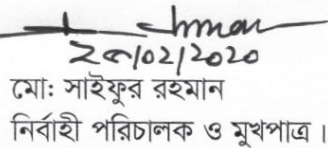 /02/2020
মো: সাইফুর রহমান
নির্বাহী পরিচালক ও মুখপাত্র।